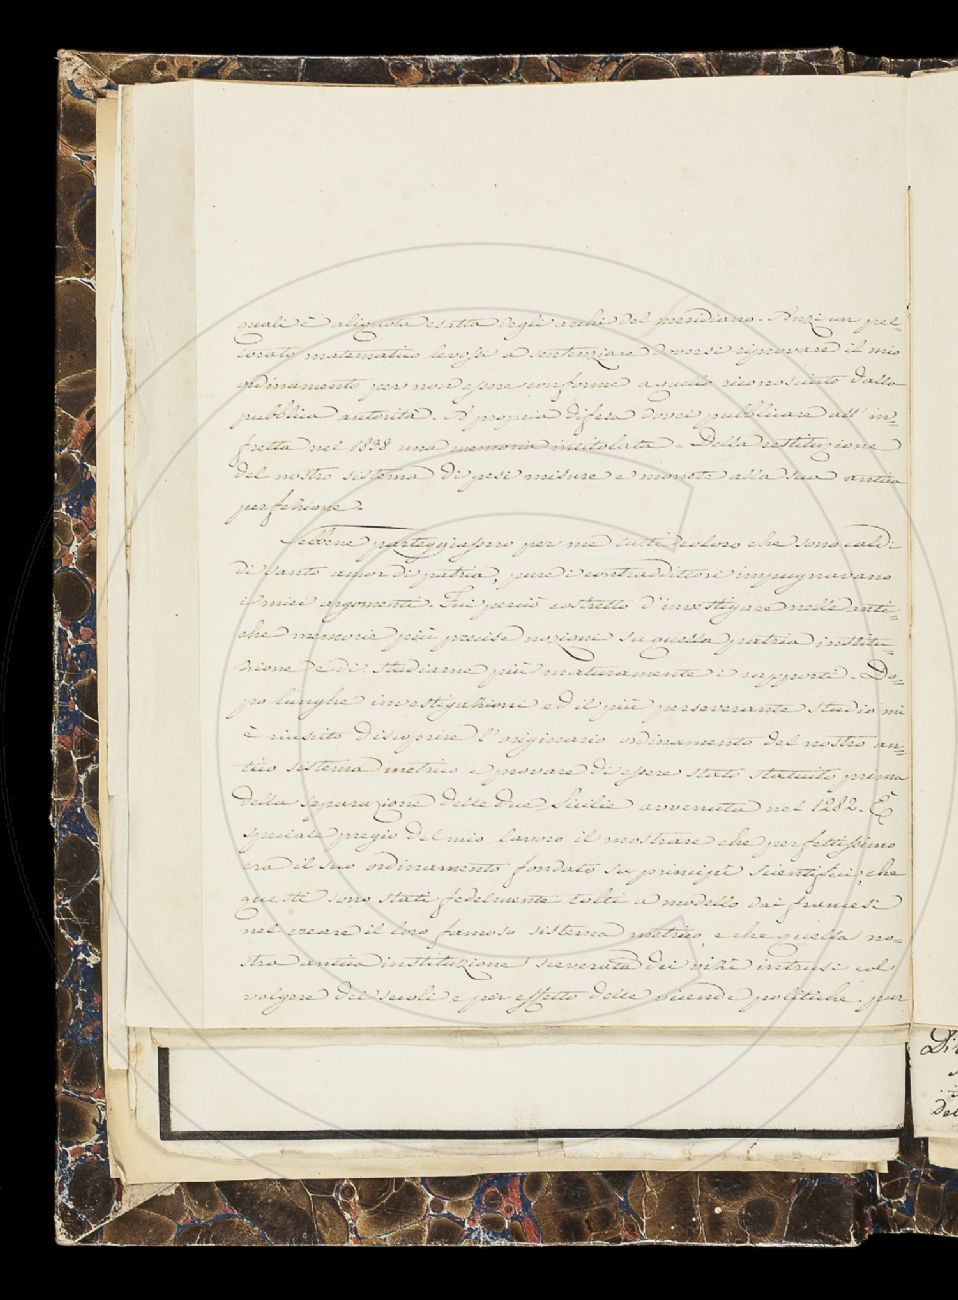 quali è aliquota esatta degli archi del meridiano. Anzi un pre=
lorato matematico levossi a sentenziare doversi riprovare il mio
ordinamento per non essere conforme a quello riconosciuto dalla
pubblica autorità. A propria difesa dovei pubblicare all' in=
fretta nel 1838 una memoria intitolata = Della restituzione
del nostro sistema di pesi misure e monete alla sua antica
perfezione =
Sebbene parteggiassero per me tutti coloro che sono caldi
di santo amor di patria, pure i contraddittori impugnavano
i miei argomenti. Fui perciò costretto d'investigare nelle anti=
che memorie più precise nozioni su quella patria institu=
zione e di studiarne più maturamente i rapporti. Do=
po lunghe investigazioni ed il più perseverante studio mi
è riuscito discoprire l'originario ordinamento del nostro an=
tico sistema metrico e provare di essere stato statuito prima
della separazione delle due Sicilie avvenuta nel 1282. È
speciale pregio del mio lavoro il mostrare che perfettissimo
era il suo ordinamento fondato su principî scientifici, che
questi sono stati fedelmente tolti a modello dai francesi
nel creare il loro famoso sistema metrico, e che quella no=
stra antica instituzione sceverata dei vizî intrusi col
volgere dei secoli e per effetto delle vicende politiche, può
Di
Del